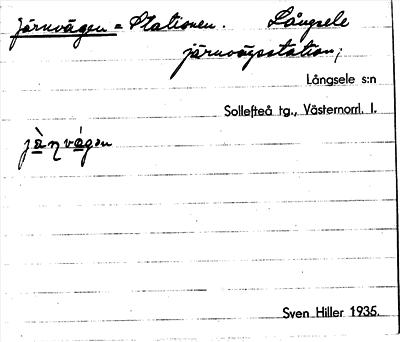 Järnvägen = Stationen. Långsele
järnvägsstation;
Långsele s:n
Sollefteå tg., Västernorrl. l.
jàɳvágen
Sven Hiller 1935.